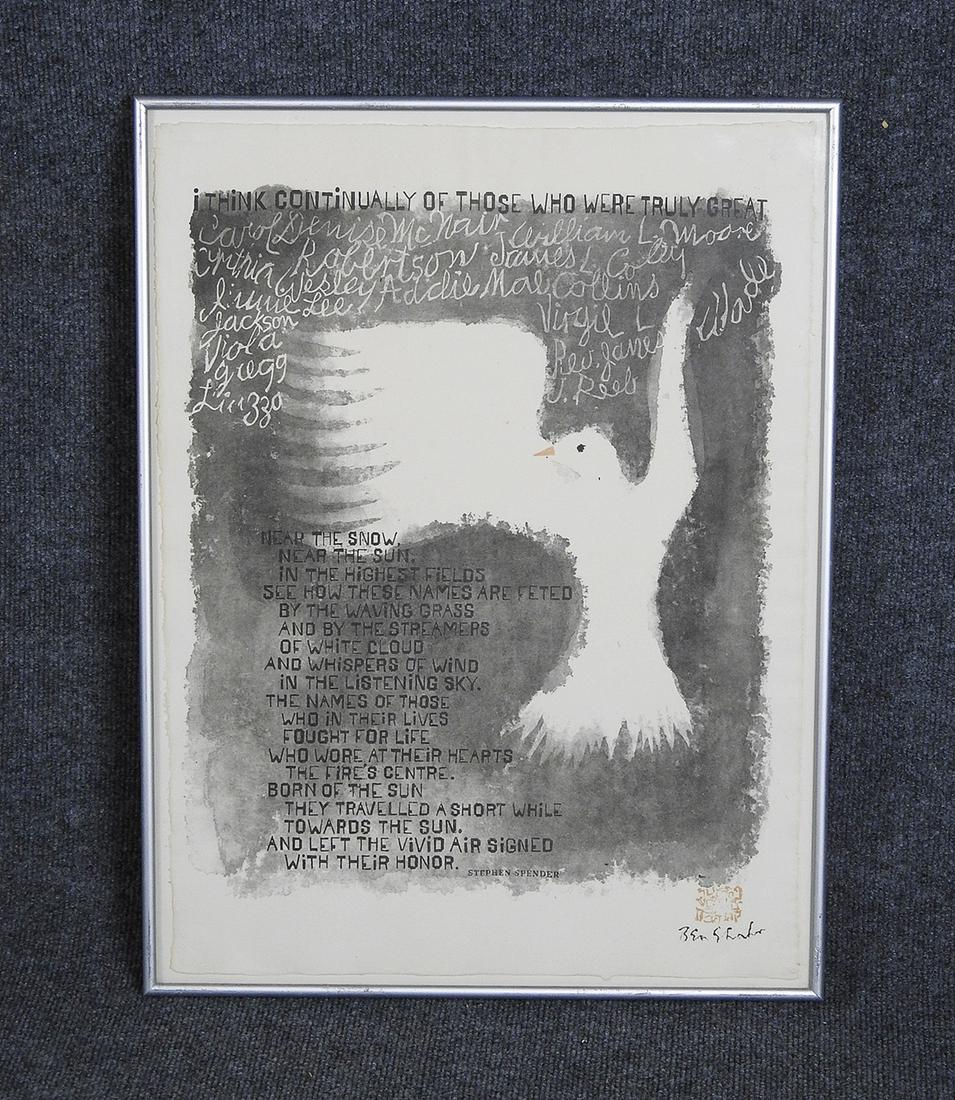 i THiNK CONTiNUALLY OF THOSE WHO WERE TRULY GREAT
Carol Denise McNair William L. Moore
Cynthia Robertson James L. Coley
Wesley Addie Mae Collins
Jimmie Lee Virgil L Wade
Jackson
Viola Rev. James
gregg J. Reeb
Liuzzo
NEAR THE SNOW,
NEAR THE SUN,
iN THE HiGHEST FiELDS
SEE HOW THESE NAMES ARE FETED
BY THE WAViNG GRASS
AND BY THE STREAMERS
OF WHiTE CLOUD
AND WHiSPERS OF WiND
iN THE LiSTENiNG SKY.
THE NAMES OF THOSE
WHO iN THEiR LiVES
FOUGHT FOR LiFE
WHO WORE AT THEiR HEARTS
THE FiRE'S CENTRE.
BORN OF THE SUN
THEY TRAVELLED A SHORT WHiLE
TOWARDS THE SUN,
AND LEFT THE ViViD AiR SiGNED
WiTH THEiR HONOR.
STEPHEN SPENDER
Ben Shahn